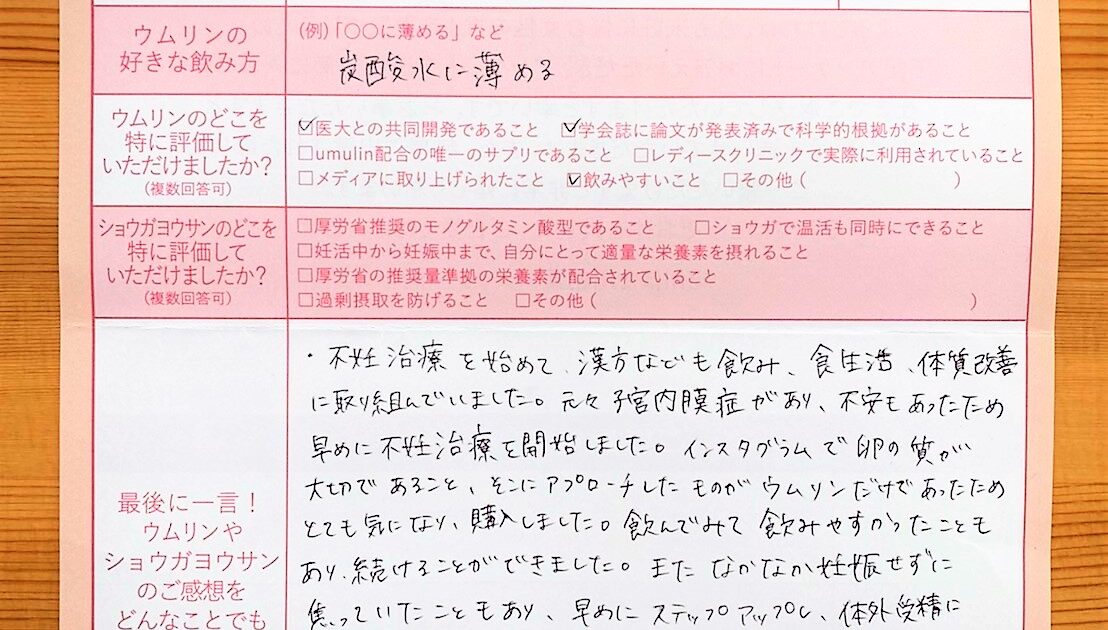 ウムリンの
好きな飲み方
(例)「〇〇に薄める」など
炭酸水に薄める
ウムリンのどこを
特に評価して
いただけましたか?
(複数回答可)
☑医大との共同開発であること ☑学会誌に論文が発表済みで科学的根拠があること
□umulin配合の唯一のサプリであること □レディースクリニックで実際に利用されていること
□メディアに取り上げられたこと ☑飲みやすいこと □その他( )
ショウガヨウサンのどこを
特に評価して
いただけましたか?
(複数回答可)
□厚労省推奨のモノグルタミン酸型であること □ショウガで温活も同時にできること
□妊活中から妊娠中まで、自分にとって適量な栄養素を摂れること
□厚労省の推奨量準拠の栄養素が配合されていること
□過剰摂取を防げること □その他( )
最後に一言!
ウムリンや
ショウガヨウサン
のご感想を
どんなことでも
・不妊治療を始めて、漢方なども飲み、食生活、体質改善
に取り組んでいました。元々子宮内膜症があり、不安もあったため
早めに不妊治療を開始しました。インスタグラムで卵の質が
大切であること、そこにアプローチしたものがウムリンだけであったため
とても気になり、購入しました。飲んでみて飲みやすかったことも
あり、続けることができました。またなかなか妊娠せずに
焦っていたこともあり、早めにステップアップし、体外受精に